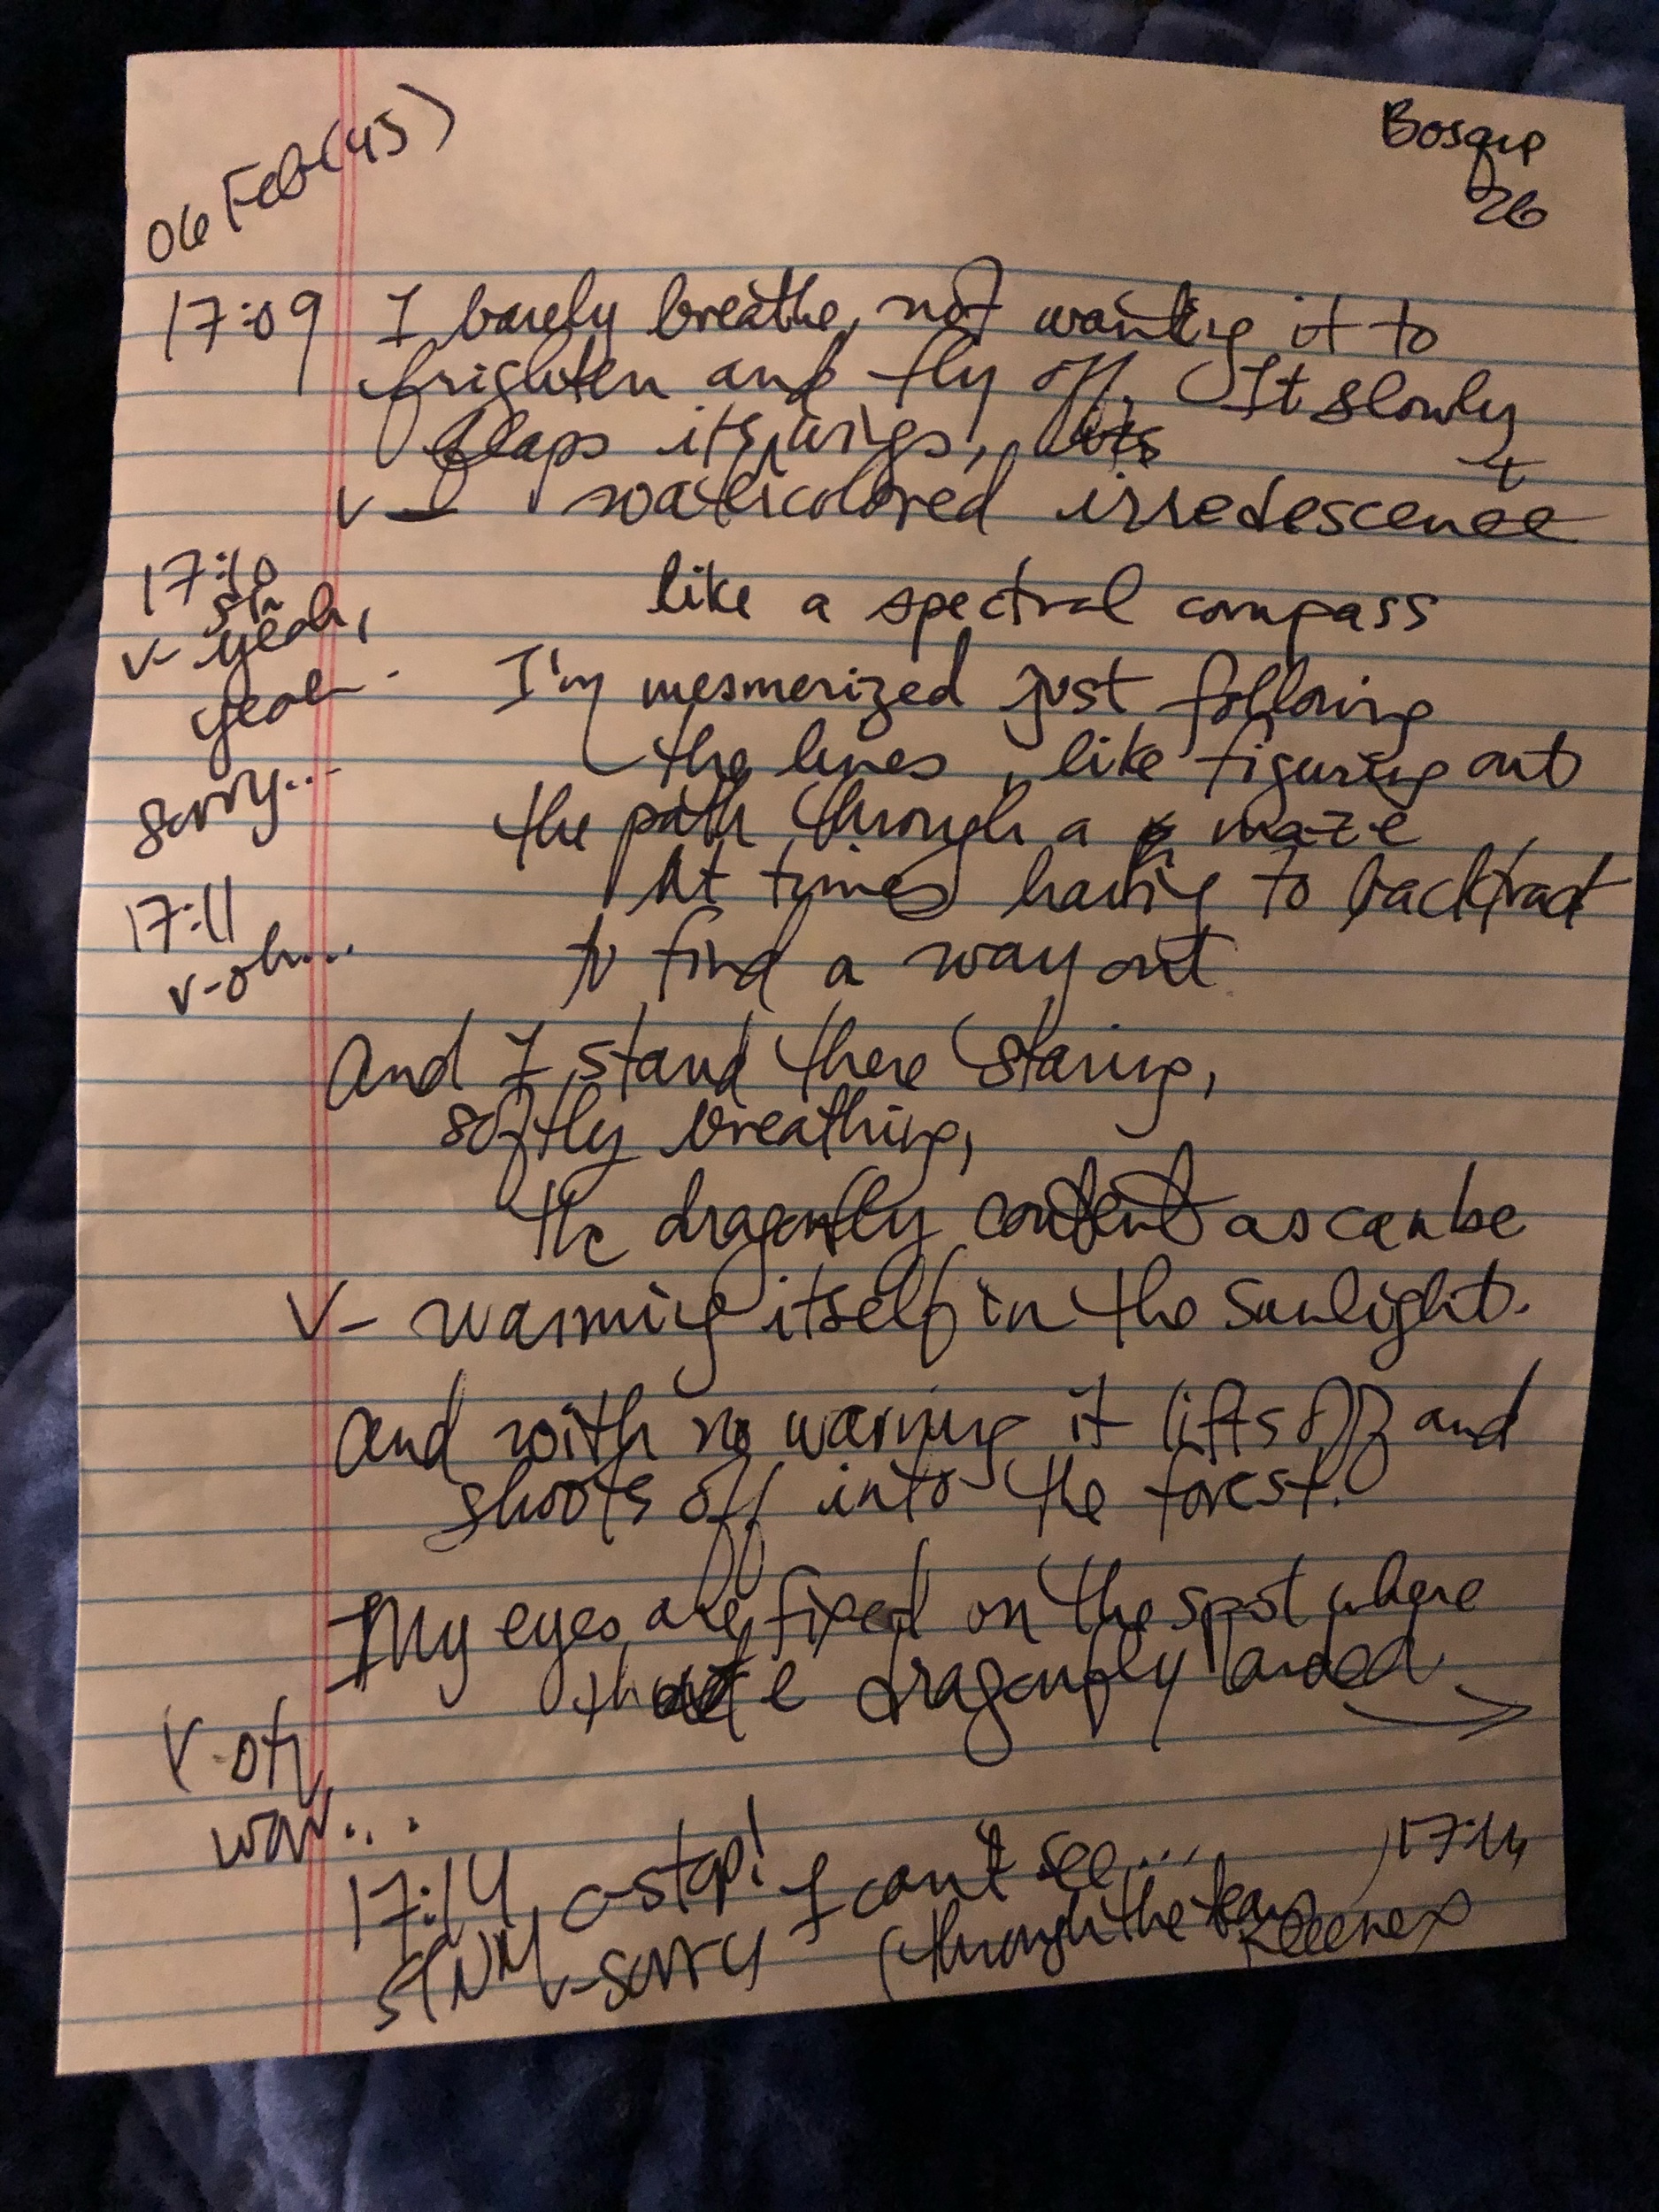 06 Feb (45)
Bosque
26
17:09 I barely breathe, not wanting it to
frighten and fly off. It slowly
flaps its wings, its
v- I watercolored irredescence
17:10
like a spectral compass
v- yeah,
yeah
I'm mesmerized just following
the lines, like figuring out
sorry...
the path through a maze
At times having to backtrack
17:11
v-oh...
to find a way out
And I stand there staring,
softly breathing,
the dragonfly content as can be
V- warming itself in the sunlight.
And with no warning it lifts off and
shoots off into the forest.
My eyes are fixed on the spot where
the dragonfly landed
V-oh,
wow...
17:14 c-stop! I can't see... 17:14
v-sorry (through the tears)
Kleenex